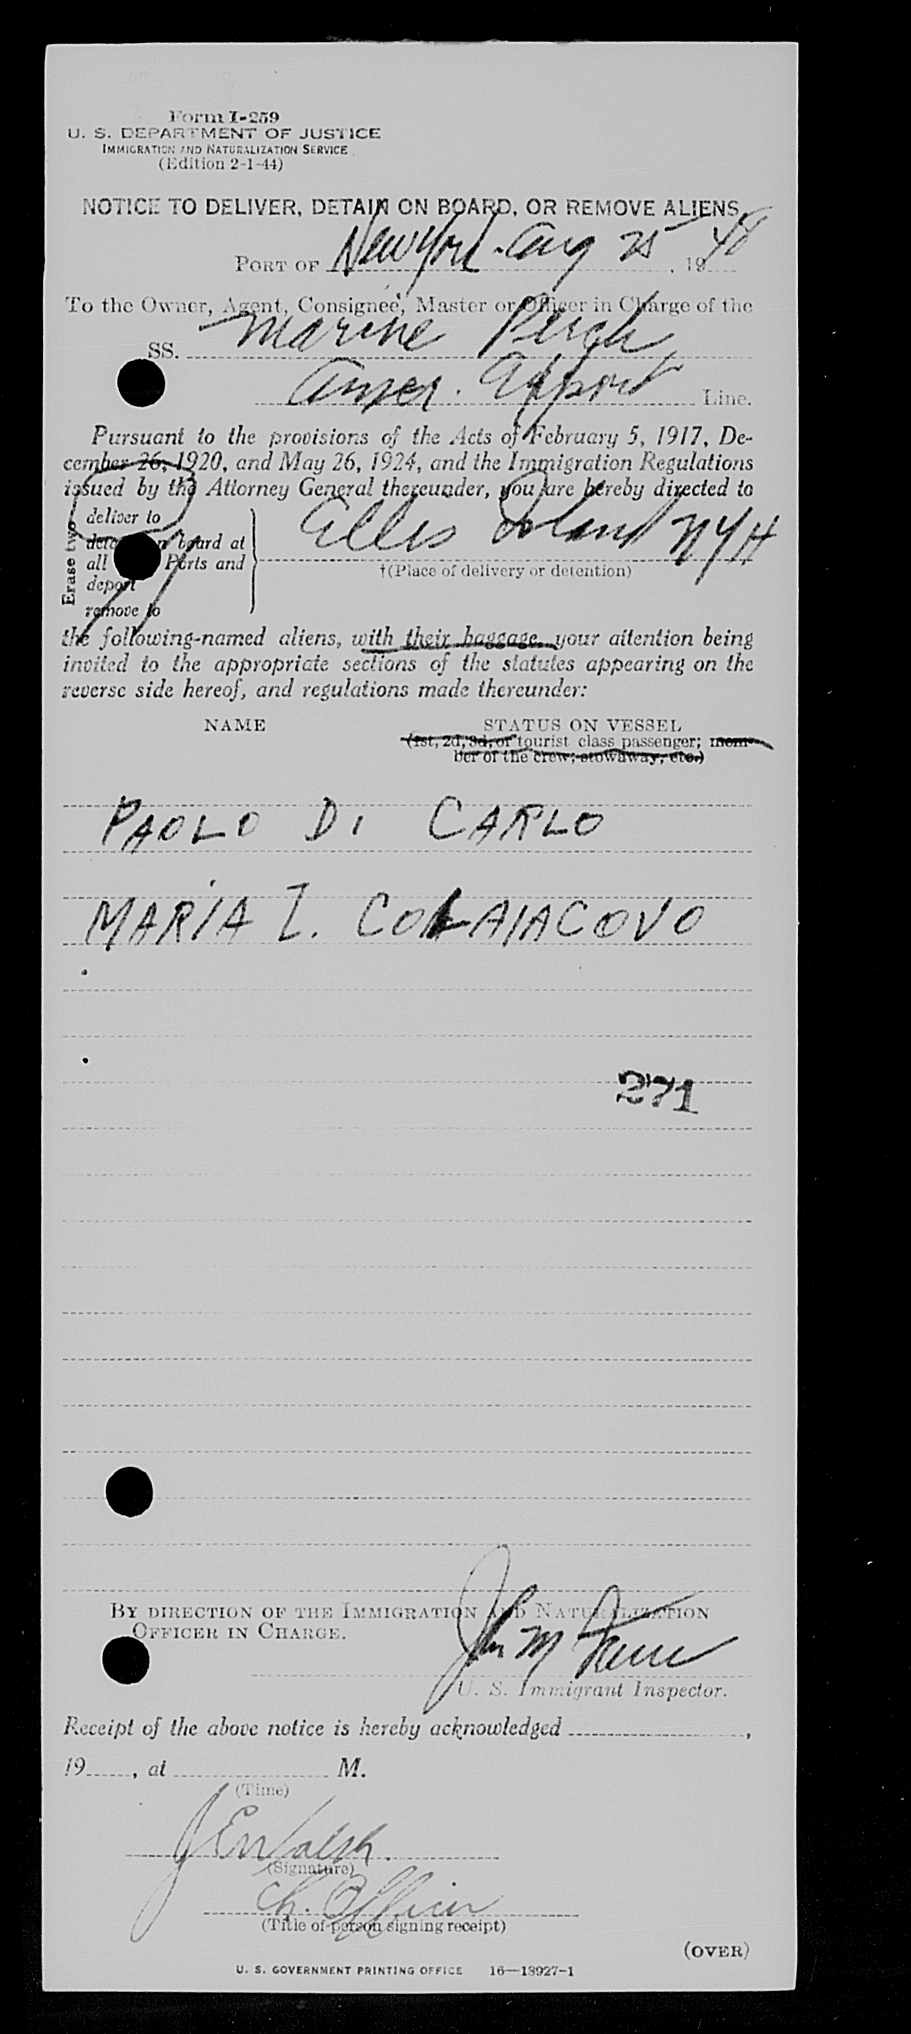 Form I-259
U. S. DEPARTMENT OF JUSTICE
IMMIGRATION AND NATURALIZATION SERVICE
(Edition 2-1-44)
NOTICE TO DELIVER, DETAIN ON BOARD, OR REMOVE ALIENS
PORT OF New York - Aug 25, 1948
To the Owner, Agent, Consignee, Master or Officer in Charge of the
SS. Marine Perch
Amer. Export Line.
Pursuant to the provisions of the Acts of February 5, 1917, De-
cember 26, 1920, and May 26, 1924, and the Immigration Regulations
issued by the Attorney General thereunder, you are hereby directed to
Erase two
deliver to
board at
all Ports and
deport
remove to
Ellis Island NYH
†(Place of delivery or detention)
the following-named aliens, with their baggage your attention being
invited to the appropriate sections of the statutes appearing on the
reverse side hereof, and regulations made thereunder:
NAME STATUS ON VESSEL
(1st, 2d, 3d, or tourist class passenger; mem-
ber of the crew; stowaway, etc.)
PAOLO DI CARLO
MARIA I. COLAIACOVO
271
BY DIRECTION OF THE IMMIGRATION AND NATURALIZATION
OFFICER IN CHARGE.
U. S. Immigrant Inspector.
Receipt of the above notice is hereby acknowledged ,
19 , at M.
(Time)
J E Walsh.
(Signature)
Ch. Officer
(Title of person signing receipt)
(OVER)
U. S. GOVERNMENT PRINTING OFFICE 16—18927-1